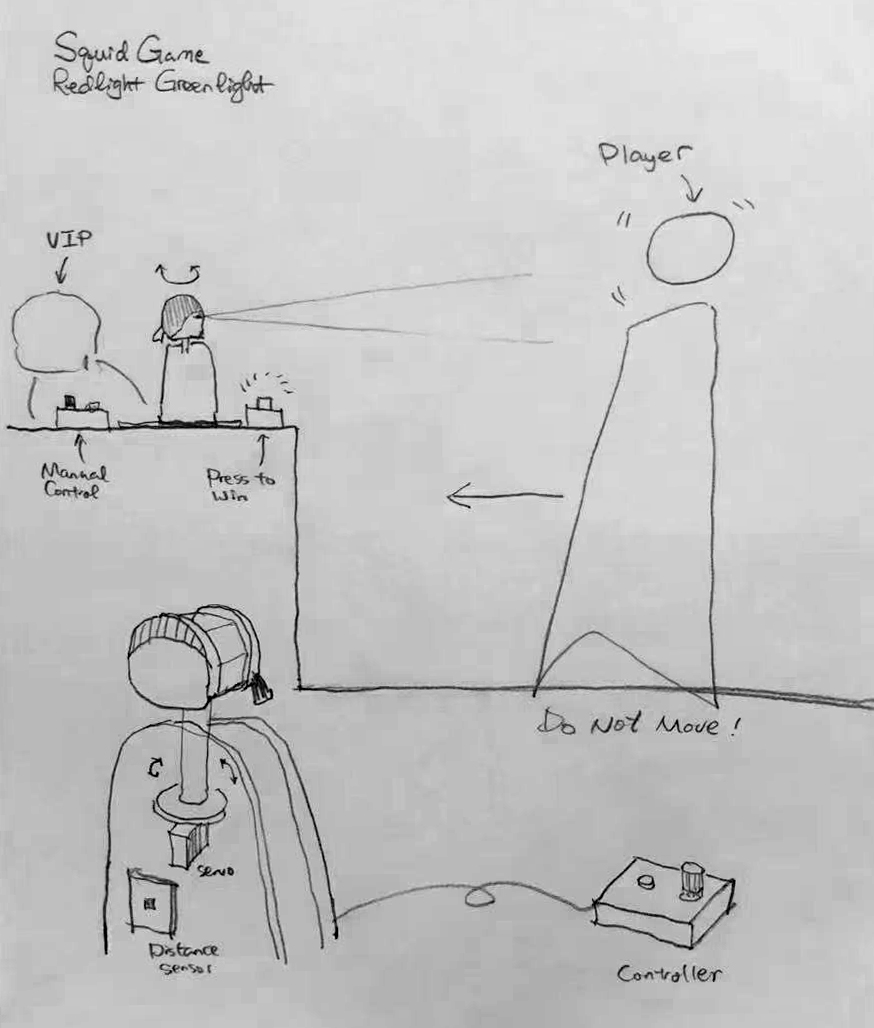 Squid Game
Redlight Greenlight
Player
VIP
Manual
Control
Press to
Win
Do Not Move!
Servo
Distance
Sensor
Controller